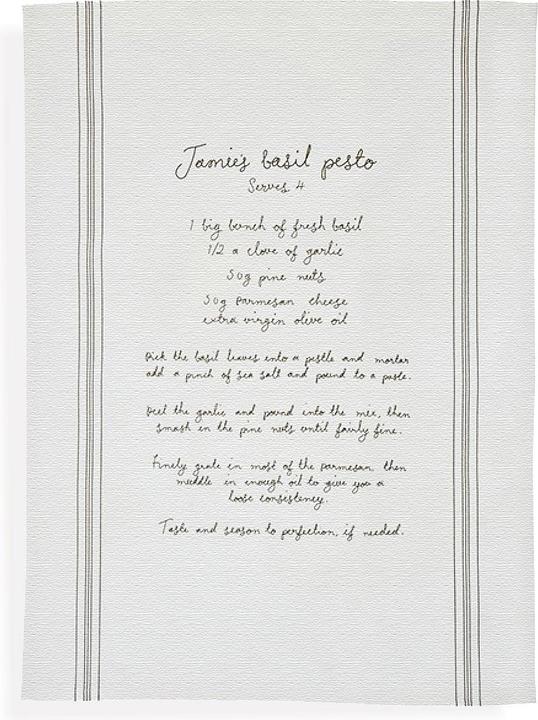 Jamie's basil pesto
Serves 4
1 big bunch of fresh basil
1/2 a clove of garlic
50g pine nuts
50g parmesan cheese
extra virgin olive oil
pick the basil leaves into a pestle and mortar
add a pinch of sea salt and pound to a paste.
peel the garlic and pound into the mix, then
smash in the pine nuts until fairly fine.
Finely grate in most of the parmesan, then
muddle in enough oil to give you a
loose consistency.
Taste and season to perfection, if needed.